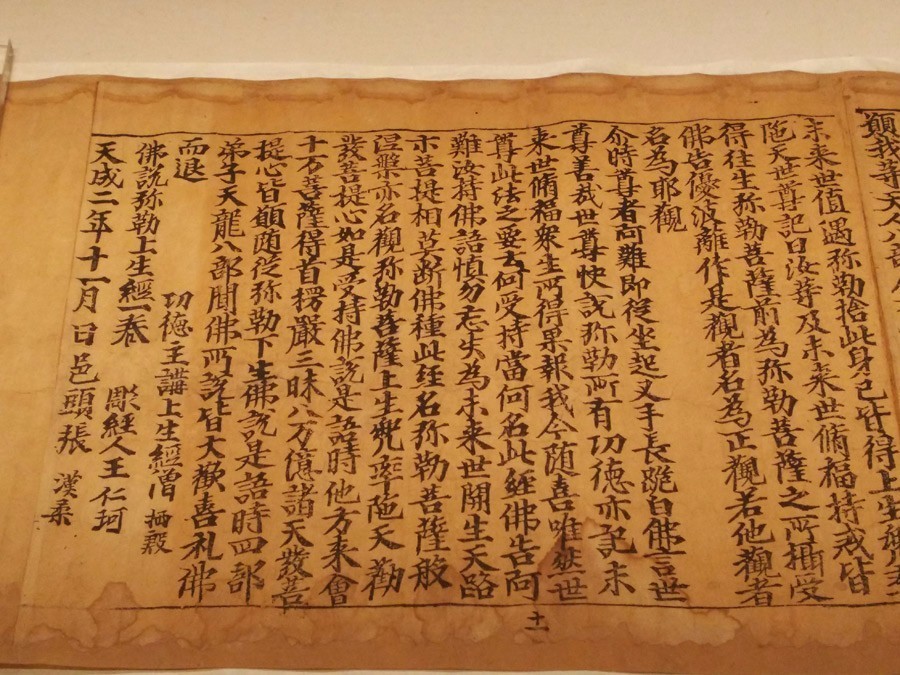 願我等天人八部
未来世值遇弥勒捨此身已皆得上生
陁天世尊記曰汝等及未来世脩福持戒皆
得往生弥勒菩薩前為弥勒菩薩之所攝受
佛告優波離作是觀者名為正觀若他觀者
名為耶觀
尒時尊者阿難即從坐起叉手長跪白佛言世
尊善哉世尊快說弥勒所有功德亦記未
来世脩福衆生所得果報我今随喜唯然世
尊此法之要云何受持當何名此經佛告阿
難汝持佛語慎勿忘失為未来世開生天路
示菩提相莫断佛種此经名弥勒菩薩般
涅槃亦名觀弥勒菩薩上生兜率陁天勸
發菩提心如是受持佛說是語時他方来會
十万菩薩得首楞嚴三昧八万億諸天發菩
提心皆願随從弥勒下生佛說是語時四部
弟子天龍八部聞佛所說皆大歡喜礼佛
而退
功德主講上生經僧 栖殷
佛說弥勒上生經一卷 彫經人王仁珂
天成二年十一月日邑頭張 漢柔
十一